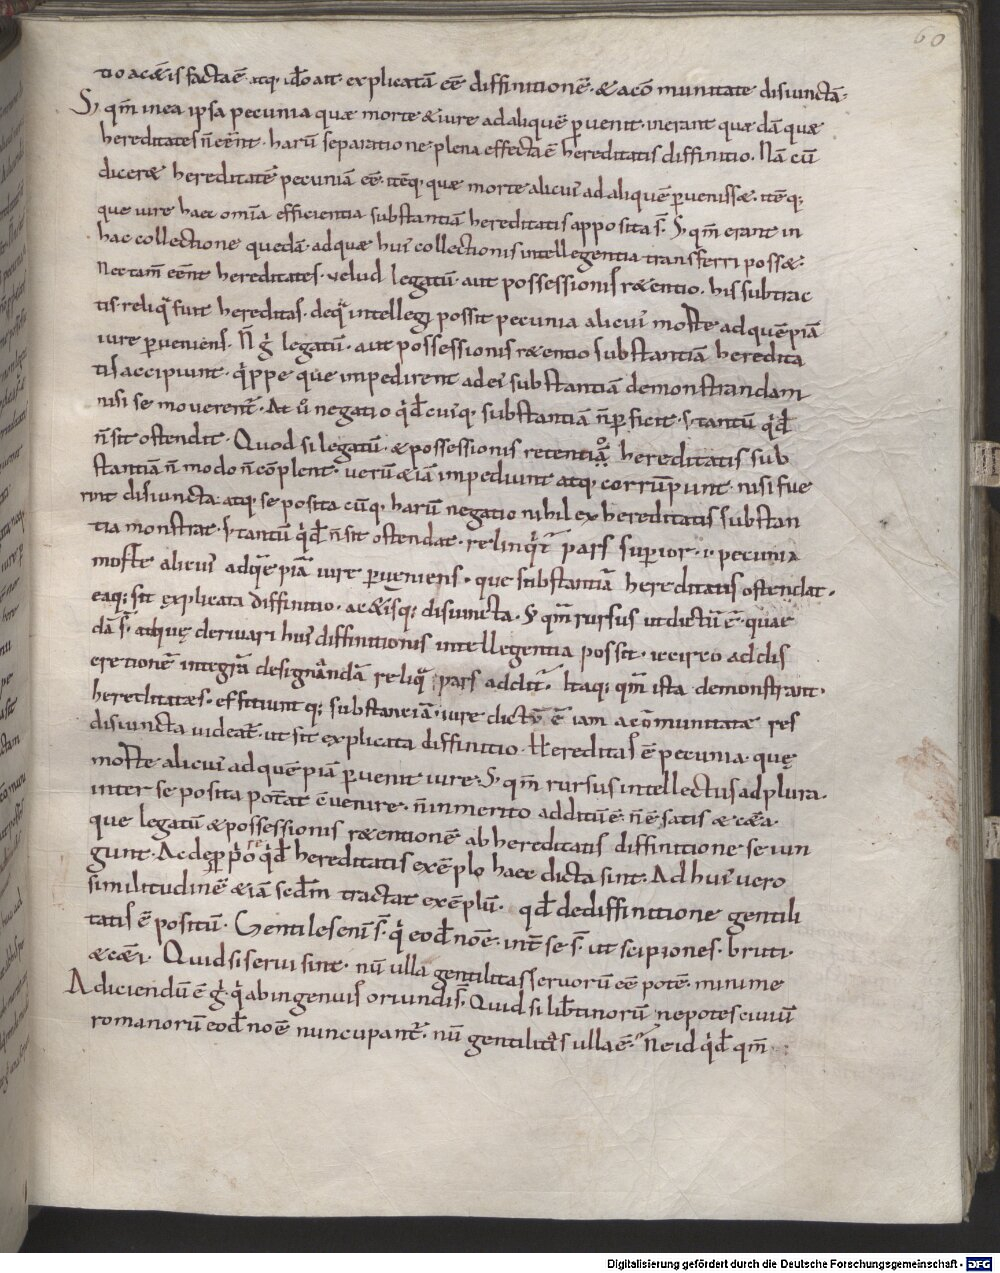 60
tio a cæ&is facta ē atq; ido ait explicatā eē diffinitionē & a cō munitate disiunctā·
S; qm̄ in ea ipsa pecunia quæ morte & iure ad aliquē ꝑuenit· inerant quædā quæ
hereditates n̄ eēnt· harū separatione plena effecta ē hereditatis diffinitio· Nā cū
diceræ hereditatē pecuniā eē· itēq; quæ morte alicui ad aliquē ꝑuenissæ· itē q;
que iure haec om̄ia efficientia substantiā hereditatis apposita s̄· S; qm̄ erant in
hac collectione quedā· ad quæ hui collectionis intellegentia transferri possæ·
Nec tam̄ eēnt hereditates· velud legatū· aut possessionis rætentio· his subtrac
tis reliq̄ fuit hereditas· de q̄ intellegi possit pecunia alicui morte ad quēpiā
iure ꝑueniens· N̄ g̊ legatū· aut possessionis rætentio substantiā heredita
tis accipiunt· q̊ppe que impedirent ad ei substantiā demonstrandam
nisi se moverent̄· At ů negatio q̊d̄ cuiq; substantiā n̄ ꝑficit· s; tantū q̊d̄
n̄ sit ostendit· Quod si legatū· & possessionis retentiā hereditatis sub
stantiā n̄ modo n̄ cōplent· verū &iā impediunt atq; corrūpunt· nisi fue
rint disiuncta· atq; se posita cūq; harū negatio nihil ex hereditatis substan
tia monstrat· s; tantū q̊d̄ n̄ sit ostendat· relinq̊t̄ pars superior· i· pecunia
morte alicui ad quēpiā iure ꝑveniens· que substantiā hereditatis ostendat·
eaq; sit explicata diffinitio· a cæ&isq; disiuncta· S; qm̄ rursus ut dictū ē· quæ
dā s̄· ad quę derivari hui diffinitionis intellegentia possit· icirco ad dis
cretionē integrā designandā reliq̄ pars addit̄· Itaq; qm̄ ista demonstrant·
hereditatæs· efficiuntq; substanciā· iure dictū ē iam a cōmunitatæ res
disiuncta videat̄· ut sit explicata diffinitio· Hereditas ē pecunia· quę
morte alicui ad quēpiā ꝑvenit iure· S; qm̄ rursus intellectus ad plura·
inter se posita pot̄at ēvenire· n̄ inmerito additū ē· n̄ ē satis & cǣa·
que legatū & possessionis rætentionē ab hereditatis diffinitione seiun
gunt· Ac de ꝓpo re q̊d̄ hereditatis exēplo haec dicta sint· Ad hui vero
similitudinē &iā scd̄m tractat exēplū· qd̄ de diffinitione gentili
tatis ē positū· Gentiles eni s̄ q̊ eod̄ noē· int̄ se s̄ ut scipiones· bruti·
& cǣi· Quid si servi sint· nū ulla gentilitas servorū eē potē· minime
Adiciendū ē g̊· q̊ ab ingenuis oriundi s̄· Quid si lib̄tinorū nepotes civiū
romanorū eod̄ noē nuncupant̄· nū gentilitas ulla ē· Ne id q̊d̄ qm̄
Digitalisierung gefördert durch die Deutsche Forschungsgemeinschaft - DFG